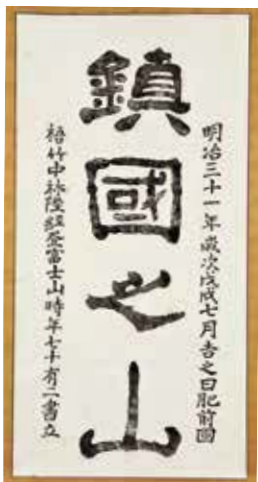 明治三十一年歳次戊戌七月吉之日肥前國
鎮國之山
梧竹中林隆經登富士山時年七十有二書立